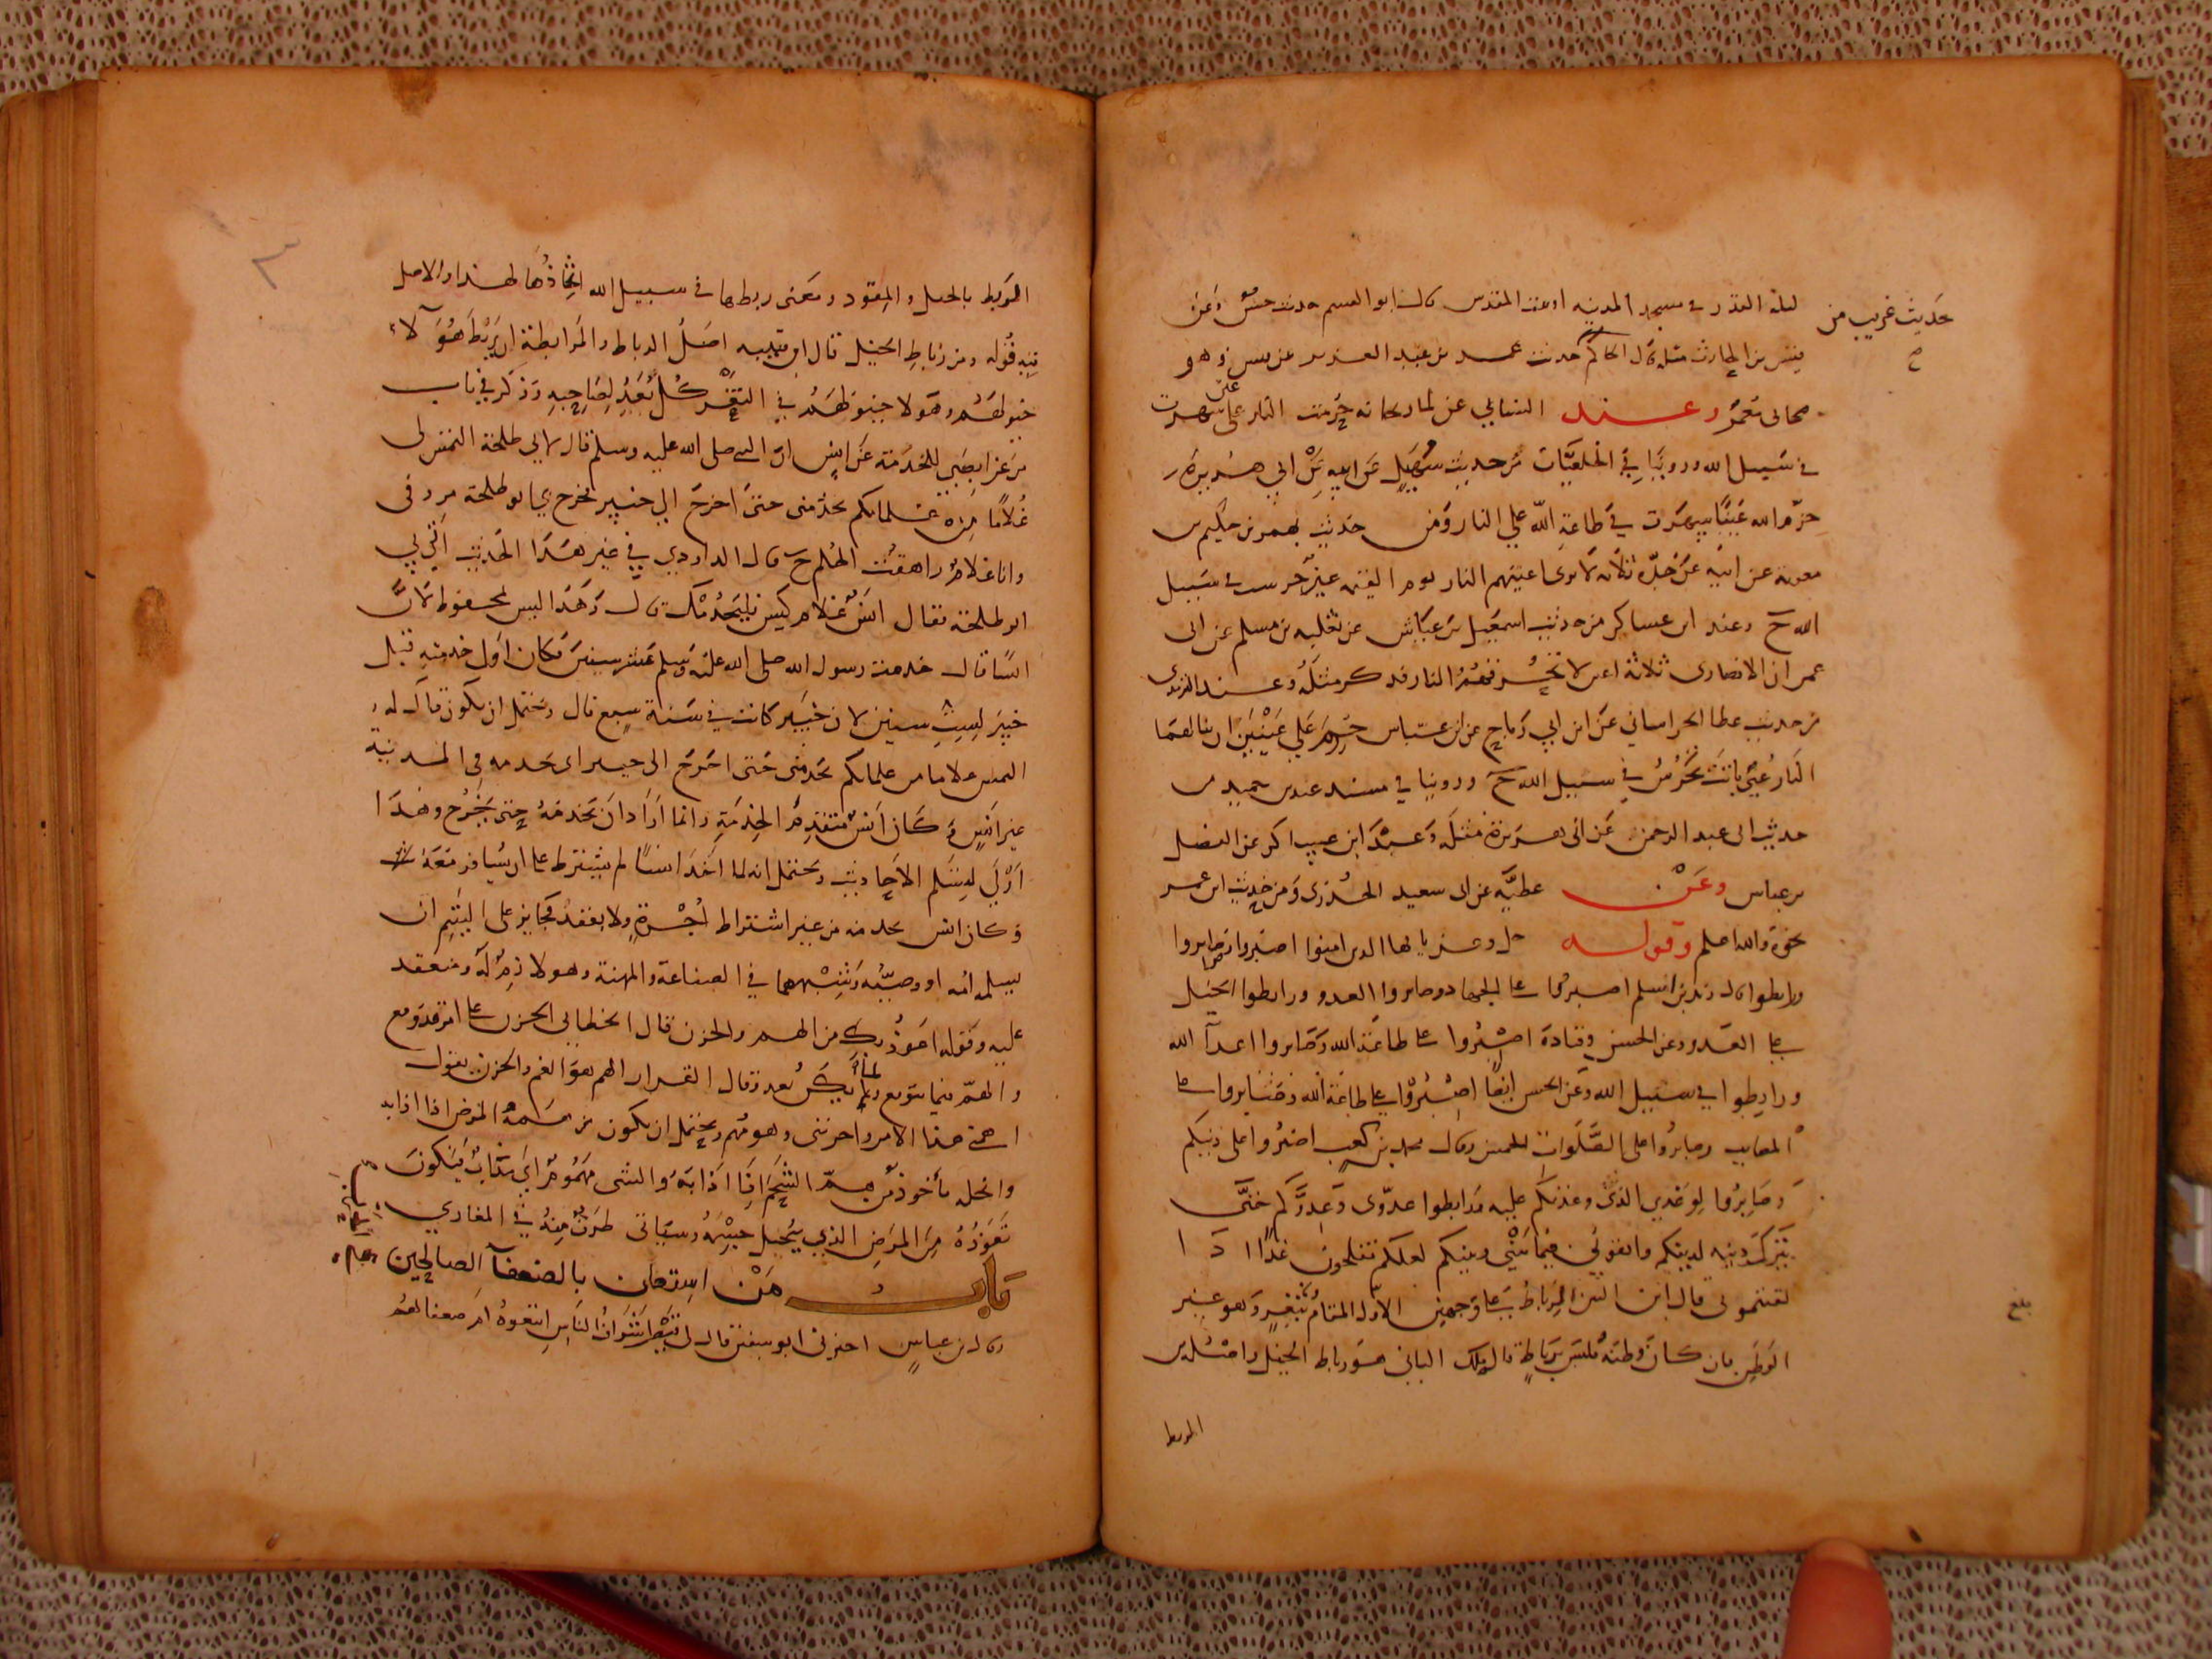 ليلة القدر في مسجد المدينه او بيت المقدس قال ابو القسم حديث حسن وعن
حديث غريب من
بشر بن الحارث مثله قال الحاكم حدثت عمر بن عبد العزيز
صحابي معمر وعند النسائي عن ابي ريحانه حرمت النار على عين سهرت
في سبيل الله وروينا في الخلعيات من حديث سهيل عن ابيه عن ابي هريرة
حرم الله عينا سهرت في طاعة الله علي النار ومن حديث بهز بن حكيم بن
معوية عن ابيه عن جده ثلاثه لا ترى اعينهم النار يوم القيمه عين حرست في سبيل
الله ح وعند ابن عساكر من حديث اسمعيل بن عياش عن ثعلبه بن مسلم عن ابي
عمران الانصاري ثلاثة اعين لا تمسها النار فذكر مثله وعند الترمذي
من حديث عطا الخراساني عن ابن ابي رباح عن ابن عباس حرم علي عينين ان ينالهما
النار عين باتت تحرس في سبيل الله ح وروينا في مسند عبد بن حميد من
حديث ابي عبد الرحمن عن ابي هريرة مثله وعند ابن عساكر عن الفضل
بن عباس وعن عطية عن ابي سعيد الخدري ومن حديث ابن عمر
نحوه والله اعلم وقوله جل وعز يا ايها الذين امنوا اصبروا وصابروا
ورابطوا قال زيد بن اسلم اصبروا على الجهاد وصابروا العدو ورابطوا الخيل
على العدو وعن الحسن وقتادة اصبروا على طاعة الله وصابروا اعدآ الله
ورابطوا في سبيل الله وعن الحسن ايضا اصبروا على طاعة الله وصابروا على
المصايب ورابطوا على الصلوات الخمس وقال محمد بن كعب اصبروا على دينكم
وصابروا لوعدي الذي وعدتكم عليه ورابطوا عدوي وعدوكم حتى
يترك دينه لدينكم واتقوني فيما بيني وبينكم لعلكم تفلحون غدا اذا
لقيتموني قال ابن التين الرباط على وجهين الاول المقام بثغر وهو غير
الوطن فان كان وطنه فليس برباط قاله ملك الثاني هو رباط الخيل واصله من
بلغ
الربط
الربط بالحبل والمقود ومعنى ربطها في سبيل الله اتخاذها لهذا والاصل
فيه قوله ومن رباط الخيل قال ابن قتيبه اصل الرباط والمرابطة ان يربط هؤلاء
خيولهم وهولا خيولهم في الثغر كل يعد لصاحبه وذكر في باب
من غزا بصبي للخدمة عن انس ان النبي صلى الله عليه وسلم قال لابي طلحة التمس لي
غلاما من غلمانكم يخدمني حتى اخرج الي خيبر فخرج بي ابو طلحة مردفي
وانا غلام راهقت الحلم ح قال الداودي في غير هذا الحديث اتي بي
ابو طلحة فقال انس غلام كيس فليخدمك قال وهذا ليس بمحفوظ لان
انسا قال خدمت رسول الله صلى الله عليه وسلم عشر سنين فكان اول خدمته قبل
خيبر لست سنين لان خيبر كانت في سنة سبع قال ويحتمل ان يكون قال له
التمس غلاما من غلمانكم يخدمني حتى اخرج الى خيبر اي يخدمه في المدينة
غير انس وكان انس متقدم الخدمة وانما اراد ان يخدمه حتى يخرج وهذا
اولى لتسلم الاحاديث ويحتمل انه لما اخذ انسا لم يشترط على ان يسافر معه
وكان انس يخدمه من غير اشتراط اجرة ولا بعقد فجايز على اليتيم ان
يسلمه امه او وصيه وشبههما في الصناعة والمهنة وهو لازم له ومنعقد
عليه وقوله اعوذ بك من الهم والحزن قال الخطابي الحزن على امر قد وقع
والهم فيما يتوقع ولما يكن بعد وقال القزاز الهم هو الغم والحزن يقول
اهمني هذا الامر واحزنني وهو مهم ويحتمل ان يكون من همه المرض اذا اذابه
وانحله مأخوذ من هم الشحم اذا اذابه والشي مهموم اي مذاب فيكون
تعوذه من المرض الذي ينحل جسمه وسياتي طرف منه في المغازي
باب من استعان بالضعفآ الصالحين
قال ابن عباس اخبرني ابو سفين قال لي قيصر اشراف الناس اتبعوه ام ضعفاهم